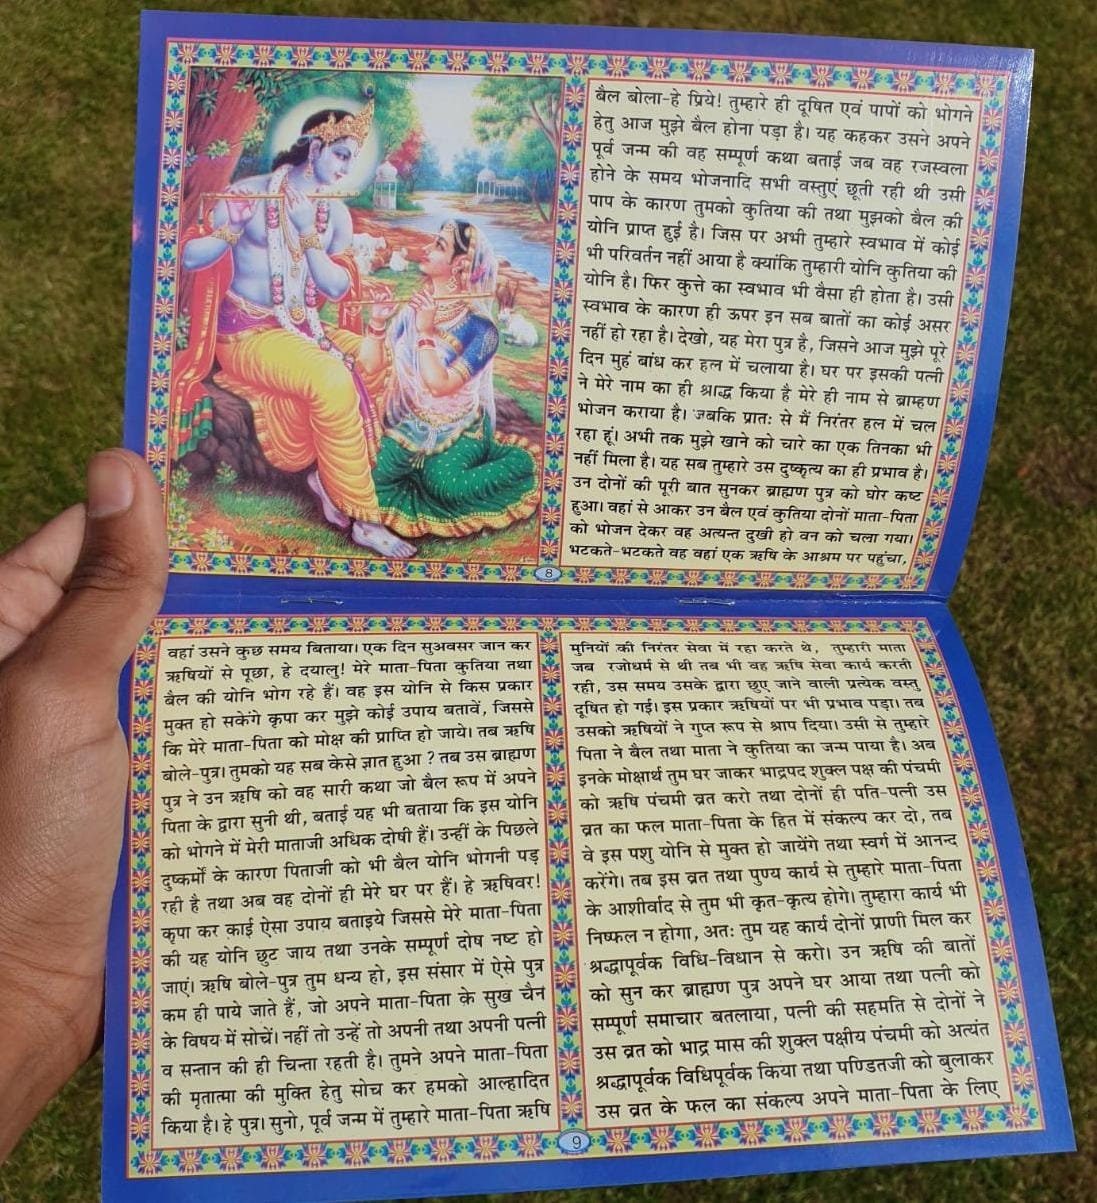 बैल बोला-हे प्रिये! तुम्हारे ही दूषित एवं पापों को भोगने
हेतु आज मुझे बैल होना पड़ा है। यह कहकर उसने अपने
पूर्व जन्म की वह सम्पूर्ण कथा बताई जब वह रजस्वला
होने के समय भोजनादि सभी वस्तुएं छूती रही थी उसी
पाप के कारण तुमको कुतिया की तथा मुझको बैल की
योनि प्राप्त हुई है। जिस पर अभी तुम्हारे स्वभाव में कोई
भी परिवर्तन नहीं आया है क्योंकि तुम्हारी योनि कुतिया की
योनि है। फिर कुत्ते का स्वभाव भी वैसा ही होता है। उसी
स्वभाव के कारण ही ऊपर इन सब बातों का कोई असर
नहीं हो रहा है। देखो, यह मेरा पुत्र है, जिसने आज मुझे पूरे
दिन मुहं बांध कर हल में चलाया है। घर पर इसकी पत्नी
ने मेरे नाम का ही श्राद्ध किया है मेरे ही नाम से ब्राम्हण
भोजन कराया है। जबकि प्रातः से मैं निरंतर हल में चल
रहा हूं। अभी तक मुझे खाने को चारे का एक तिनका भी
नहीं मिला है। यह सब तुम्हारे उस दुष्कृत्य का ही प्रभाव है।
उन दोनों की पूरी बात सुनकर ब्राह्मण पुत्र को घोर कष्ट
हुआ। वहां से आकर उन बैल एवं कुतिया दोनों माता-पिता
को भोजन देकर वह अत्यन्त दुखी हो वन को चला गया।
भटकते-भटकते वह वहां एक ऋषि के आश्रम पर पहुंचा,
8
वहां उसने कुछ समय बिताया। एक दिन सुअवसर जान कर
ऋषियों से पूछा, हे दयालु! मेरे माता-पिता कुतिया तथा
बैल की योनि भोग रहे हैं। वह इस योनि से किस प्रकार
मुक्त हो सकेंगे कृपा कर मुझे कोई उपाय बतावें, जिससे
कि मेरे माता-पिता को मोक्ष की प्राप्ति हो जाये। तब ऋषि
बोले-पुत्र। तुमको यह सब केसे ज्ञात हुआ ? तब उस ब्राह्मण
पुत्र ने उन ऋषि को वह सारी कथा जो बैल रूप में अपने
पिता के द्वारा सुनी थी, बताई यह भी बताया कि इस योनि
को भोगने में मेरी माताजी अधिक दोषी हैं। उन्हीं के पिछले
दुष्कर्मों के कारण पिताजी को भी बैल योनि भोगनी पड़
रही है तथा अब वह दोनों ही मेरे घर पर हैं। हे ऋषिवर!
कृपा कर कोई ऐसा उपाय बताइये जिससे मेरे माता-पिता
की यह योनि छुट जाय तथा उनके सम्पूर्ण दोष नष्ट हो
जाएं। ऋषि बोले-पुत्र तुम धन्य हो, इस संसार में ऐसे पुत्र
कम ही पाये जाते हैं, जो अपने माता-पिता के सुख चैन
के विषय में सोचें। नहीं तो उन्हें तो अपनी तथा अपनी पत्नी
व सन्तान की ही चिन्ता रहती है। तुमने अपने माता-पिता
की मृतात्मा की मुक्ति हेतु सोच कर हमको आल्हादित
किया है। हे पुत्र। सुनो, पूर्व जन्म में तुम्हारे माता-पिता ऋषि
मुनियों की निरंतर सेवा में रहा करते थे, तुम्हारी माता
जब रजोधर्म से थी तब भी वह ऋषि सेवा कार्य करती
रही, उस समय उसके द्वारा छुए जाने वाली प्रत्येक वस्तु
दूषित हो गई। इस प्रकार ऋषियों पर भी प्रभाव पड़ा। तब
उसको ऋषियों ने गुप्त रूप से श्राप दिया। उसी से तुम्हारे
पिता ने बैल तथा माता ने कुतिया का जन्म पाया है। अब
इनके मोक्षार्थ तुम घर जाकर भाद्रपद शुक्ल पक्ष की पंचमी
को ऋषि पंचमी व्रत करो तथा दोनों ही पति-पत्नी उस
व्रत का फल माता-पिता के हित में संकल्प कर दो, तब
वे इस पशु योनि से मुक्त हो जायेंगे तथा स्वर्ग में आनन्द
करेंगे। तब इस व्रत तथा पुण्य कार्य से तुम्हारे माता-पिता
के आशीर्वाद से तुम भी कृत-कृत्य होगे। तुम्हारा कार्य भी
निष्फल न होगा, अतः तुम यह कार्य दोनों प्राणी मिल कर
श्रद्धापूर्वक विधि-विधान से करो। उन ऋषि की बातों
को सुन कर ब्राह्मण पुत्र अपने घर आया तथा पत्नी को
सम्पूर्ण समाचार बतलाया, पत्नी की सहमति से दोनों ने
उस व्रत को भाद्र मास की शुक्ल पक्षीय पंचमी को अत्यंत
श्रद्धापूर्वक विधिपूर्वक किया तथा पण्डितजी को बुलाकर
उस व्रत के फल का संकल्प अपने माता-पिता के लिए
9